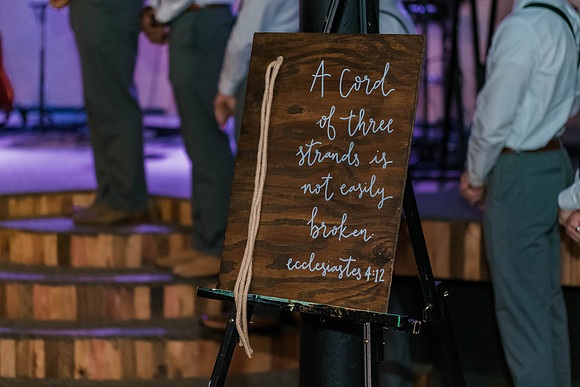 A Cord
of three
strands is
not easily
broken.
ecclesiastes 4:12